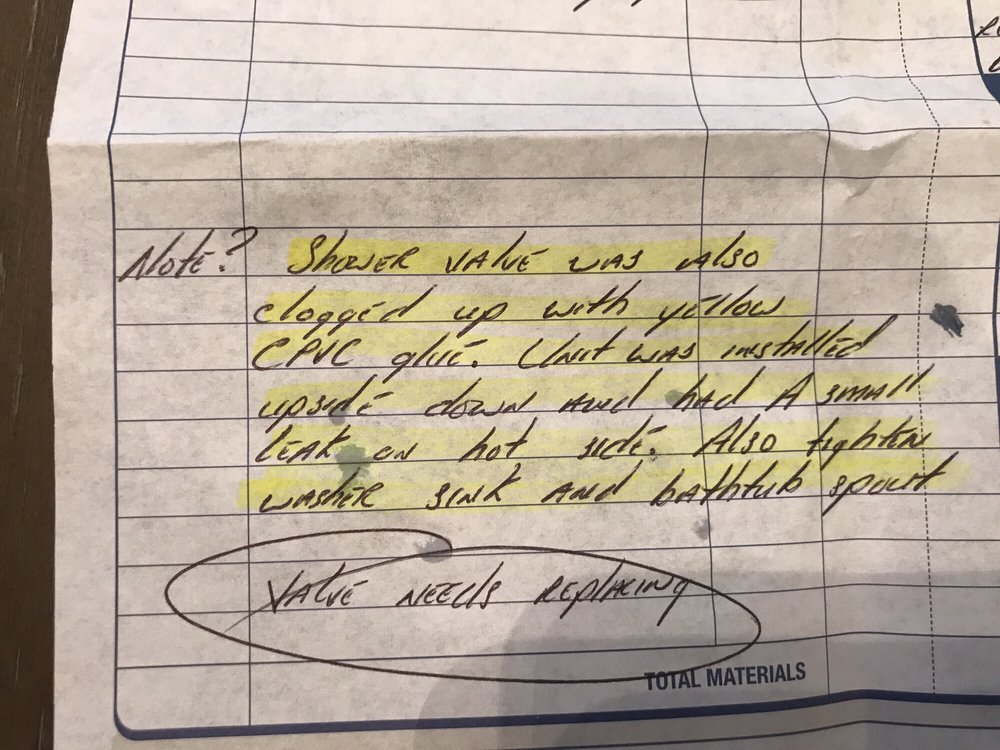 Note? Shower valve was also
clogged up with yellow
CPVC glue. Unit was installed
upside down and had A small
leak on hot side. Also tighten
washer sink and bathtub spout
Valve needs replacing
TOTAL MATERIALS